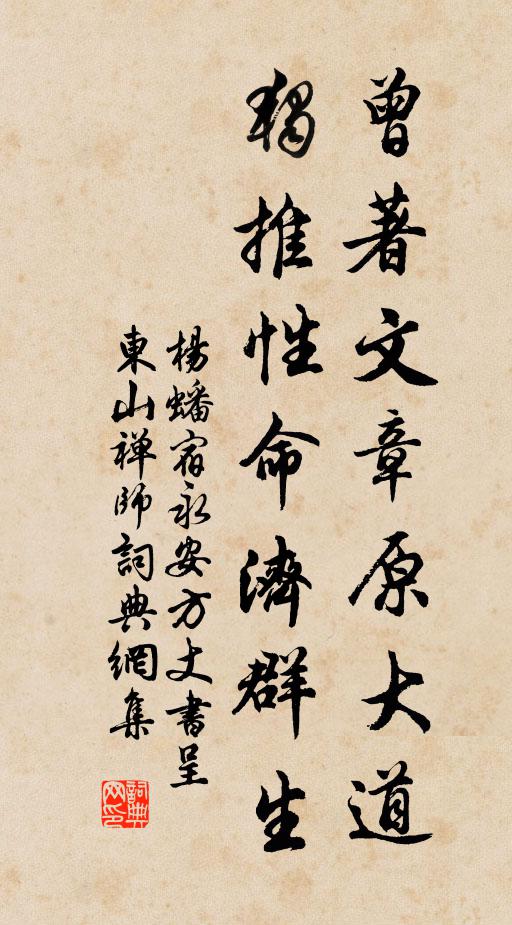 曾著文章原大道
獨推性命濟群生
楊蟠宿永安方丈書呈
東山禅師詞典網集
詞典网印